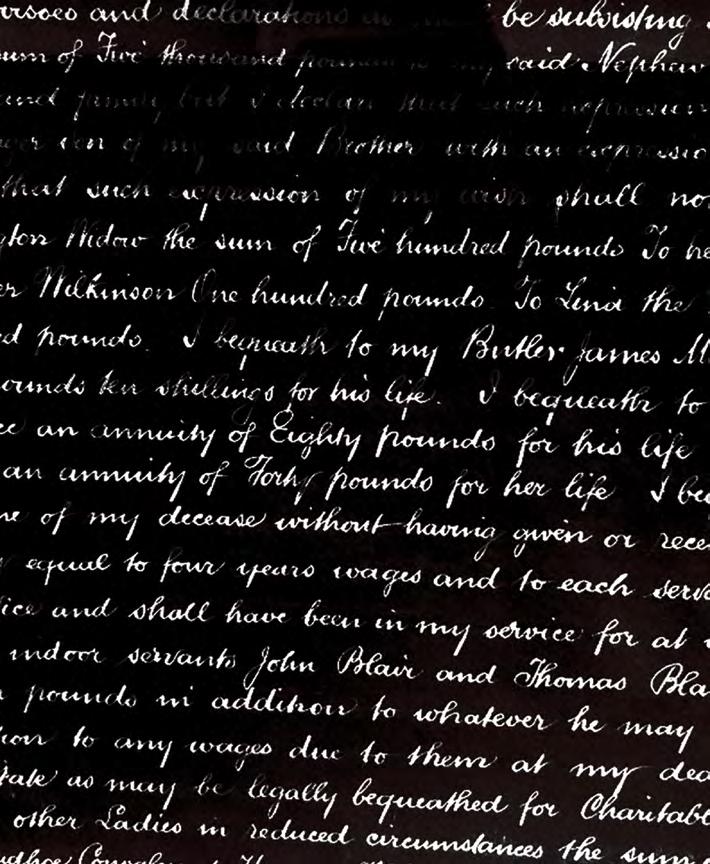 and declarations be subsisting
sum of Five thousand pounds to my said Nephew
and family but I declare that such expression
son of my said Brother with an expression
that such expression of my wish shall not
Widow the sum of Five hundred pounds To
Wilkinson One hundred pounds. To the
pounds. I bequeath to my Butler James
pounds ten shillings for his life. I bequeath to
an annuity of Eighty pounds for his life
an annuity of Forty pounds for her life I
of my decease without having given or
equal to four years wages and to each
and shall have been in my service for at
indoor servants John Blair and Thomas
pounds in addition to whatever he may
to any wages due to them at my
as may be legally bequeathed for
other Ladies in reduced circumstances the sum